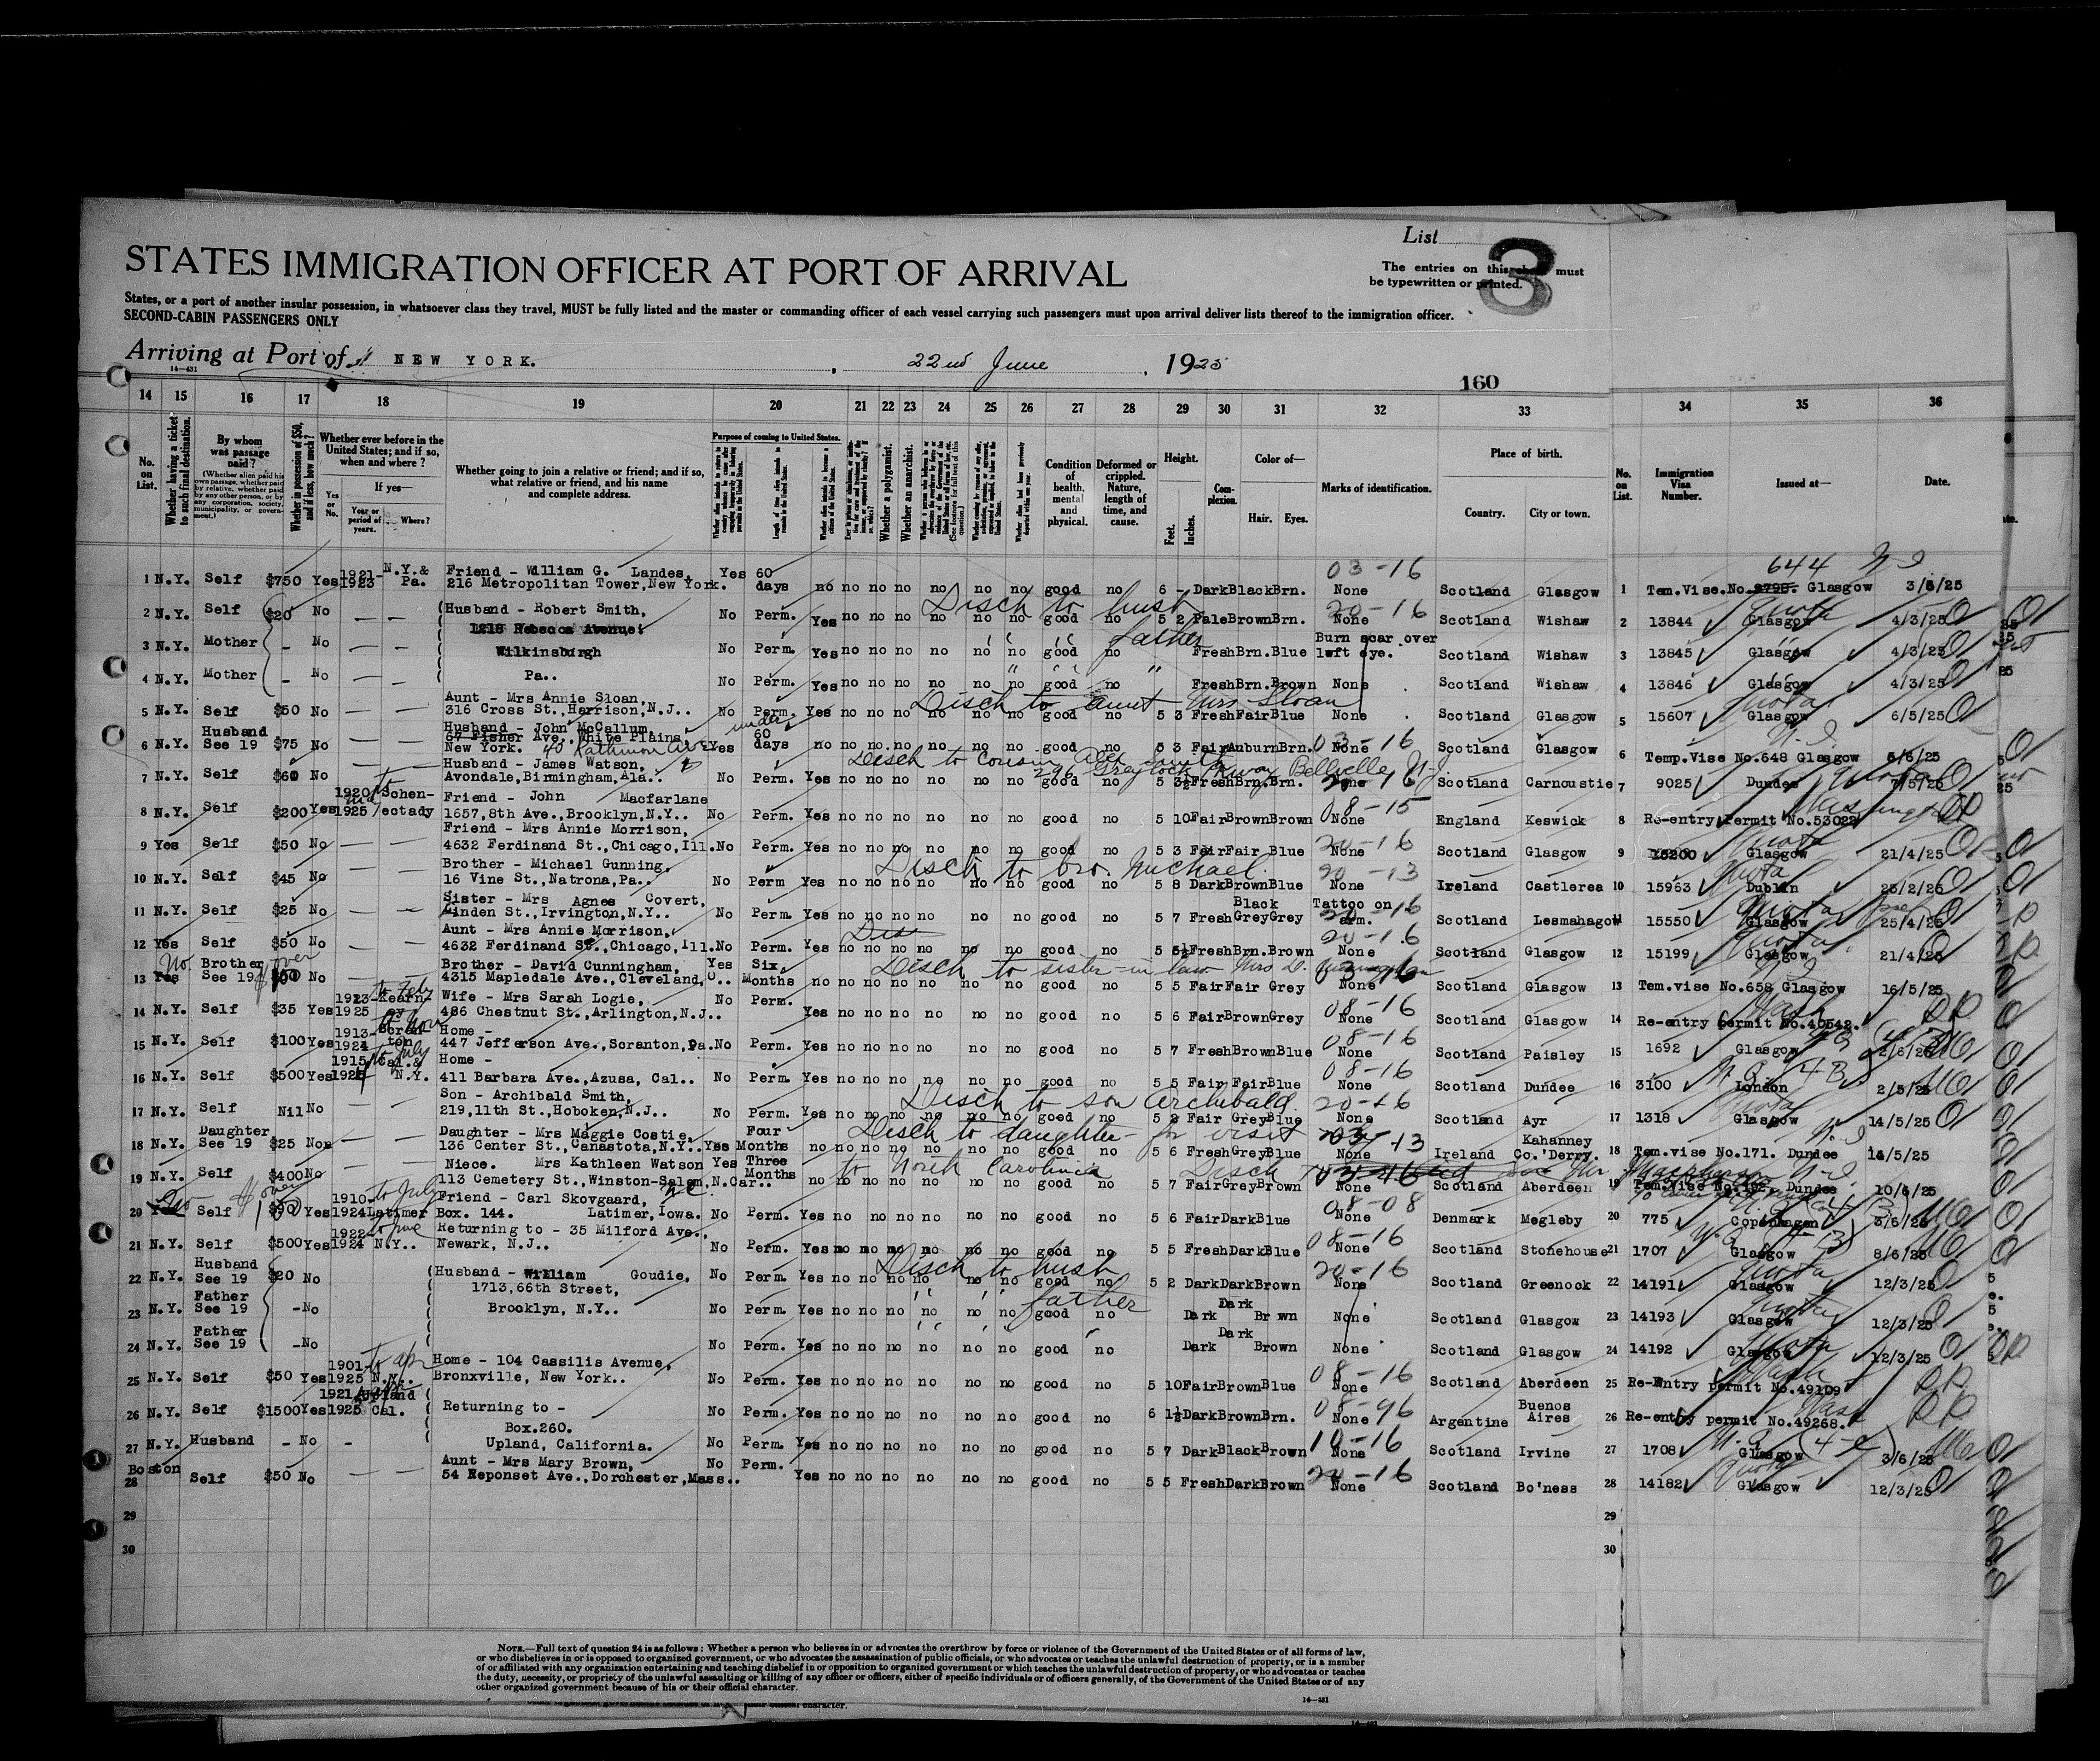 List 3
STATES IMMIGRATION OFFICER AT PORT OF ARRIVAL
The entries on this sheet must
be typewritten or printed.
States, or a port of another insular possession, in whatsoever class they travel, MUST be fully listed and the master or commanding officer of each vessel carrying such passengers must upon arrival deliver lists thereof to the immigration officer.
SECOND-CABIN PASSENGERS ONLY
Arriving at Port of NEW YORK. , 22nd June , 1925
14—431
160
14 15 16 17 18 19 20 21 22 23 24 25 26 27 28 29 30 31 32 33 34 35 36
No. on List.
Whether having a ticket to such final destination.
By whom was passage paid?
Whether in possession of $50, and if less, how much?
Whether ever before in the United States; and if so, when and where?
Yes or No.
If yes—
Year or period of years.
Where?
Whether going to join a relative or friend; and if so, what relative or friend, and his name and complete address.
Purpose of coming to United States.
Whether a polygamist.
Whether an anarchist.
Condition of health, mental and physical.
Deformed or crippled. Nature, length of time, and cause.
Height.
Feet. Inches.
Complexion.
Color of—
Hair. Eyes.
Marks of identification.
Place of birth.
Country. City or town.
No. on List.
Immigration Visa Number.
Issued at—
Date.
1 N.Y. Self $750 Yes 1921-1923 N.Y.& Pa. Friend - William G. Landes, 216 Metropolitan Tower, New York. Yes 60 days no no no no no no no good no 6 - Dark Black Brn. 03-16 None Scotland Glasgow 1 Tem.Vise.No. 644 Glasgow 3/6/25
2 N.Y. Self $20 No — — Husband - Robert Smith, No Perm. Yes no no no no no no good no Disch to husb 5 2 Pale Brown Brn. 20-16 None Scotland Wishaw 2 13844 Quota Glasgow 4/3/25
1218 Rebecca Avenue,
3 N.Y. Mother - No — — Wilkinsburgh No Perm. Yes no no no no no no good no father Fresh Brn. Blue Burn scar over left eye. Scotland Wishaw 3 13845 Glasgow 4/3/25
4 N.Y. Mother - No — — Pa.. No Perm. Yes no no no no no no good no Fresh Brn. Brown None Scotland Wishaw 4 13846 Glasgow 4/3/25
5 N.Y. Self $50 No Aunt - Mrs Annie Sloan, 316 Cross St., Harrison, N.J.. No Perm. Yes no no no no no no good no Disch to aunt Mrs Sloan 5 3 Fresh Fair Blue None Scotland Glasgow 5 15607 Quota Glasgow 6/5/25
6 N.Y. Husband See 19 $75 No Husband - John McCallum, 67 Fisher Ave., White Plains, New York. Yes under 60 days no no no no no no no good no 5 3 Fair Auburn Brn. 03-16 None Scotland Glasgow 6 Temp.Vise No.648 Glasgow 5/6/25
7 N.Y. Self $60 No Husband - James Watson, Avondale, Birmingham, Ala.. No Perm. Yes no no no no no no good no Disch to cousin Alex Smith 5 3½ Fresh Brn. Brn. Scotland Carnoustie 7 9025 Dundee 7/5/25
8 N.Y. Self $200 Yes 1920 1925 Schenectady Friend - John Macfarlane 1657, 8th Ave., Brooklyn, N.Y.. No Perm. Yes no no no no no no good no 5 10 Fair Brown Brown 08-15 None England Keswick 8 Re-entry Permit No.53022 Washington
9 Yes Self $50 No — — Friend - Mrs Annie Morrison, 4632 Ferdinand St., Chicago, Ill. No Perm. Yes no no no no no no good no 5 3 Fair Fair Blue 20-16 None Scotland Glasgow 9 15200 Quota Glasgow 21/4/25
10 N.Y. Self $45 No — — Brother - Michael Gunning, 16 Vine St., Natrona, Pa.. No Perm Yes no no no no no no good no Disch to bro. Michael 5 8 Dark Brown Blue 20-13 None Ireland Castlerea 10 15963 Quota Dublin 25/2/25
11 N.Y. Self $25 No — — Sister - Mrs Agnes Covert, Linden St., Irvington, N.Y.. No Perm. Yes no no no no no no good no 5 7 Fresh Black Grey Grey Tattoo on arm. Scotland Lesmahagow 11 15550 Quota Glasgow 25/4/25
12 Yes Self $50 No — — Aunt - Mrs Annie Morrison, 4632 Ferdinand St., Chicago, Ill. No Perm. Yes no no no no no no good no 5 5½ Fresh Brn. Brown 20-16 None Scotland Glasgow 12 15199 Quota Glasgow 21/4/25
13 No Yes Brother See 19 No Brother - David Cunningham, 4315 Mapledale Ave., Cleveland, O.. Yes Six Months no no no no no no no good no Disch to sister-in law Mrs D. Cunningham 5 5 Fair Fair Grey None Scotland Glasgow 13 Tem.vise No.658 Glasgow 16/5/25
14 N.Y. Self $35 Yes 1923-1925 to Feb Kearny Wife - Mrs Sarah Logie, 486 Chestnut St., Arlington, N.J.. No Perm. Yes no no no no no no good no 5 6 Fair Brown Grey 08-16 None Scotland Glasgow 14 Re-entry permit No.40542. Wash
15 N.Y. Self $100 Yes 1913-1924 to Nov Scranton Home - 447 Jefferson Ave., Scranton, Pa. No Perm. Yes no no no no no no good no 5 7 Fresh Brown Blue 08-16 None Scotland Paisley 15 1692 Glasgow 2/6/25
16 N.Y. Self $500 Yes 1915 to July Cal.& N.Y. Home - 411 Barbara Ave., Azusa, Cal.. No Perm. Yes no no no no no no good no 5 5 Fair Fair Blue 08-16 None Scotland Dundee 16 3100 London 2/5/25
17 N.Y. Self Nil No — — Son - Archibald Smith, 219, 11th St., Hoboken, N.J.. No Perm. Yes no no no no no no good no Disch to son Archibald 5 2 Fair Grey Blue 20-16 None Scotland Ayr 17 1318 Quota Glasgow 14/5/25
18 N.Y. Daughter See 19 $25 None — — Daughter - Mrs Maggie Costie, 136 Center St., Canastota, N.Y.. Yes Four Months no no no no no no no good no Disch to daughter - for visit 5 6 Fresh Grey Blue None Ireland Kahanney Co.'Derry. 18 Tem.vise No.171. Dundee
19 N.Y. Self $400 No — — Niece. Mrs Kathleen Watson 113 Cemetery St., Winston-Salem, N.Car.. Yes Three Months no no no no no no no good no to North Carolina 5 7 Fair Grey Brown None Scotland Aberdeen 19 Tem.Vise No.192. Dundee 10/6/25
20 Self Yes 1910-1924 to July Latimer Friend - Carl Skovgaard, Box. 144. Latimer, Iowa. No Perm. Yes no no no no no no good no 5 6 Fair Dark Blue 08-08 None Denmark Megleby 20 775 Copenhagen
21 N.Y. Self $500 Yes 1922-1924 N.Y.. Returning to - 35 Milford Ave., Newark, N.J.. No Perm. Yes no no no no no no good no 5 5 Fresh Dark Blue 08-16 None Scotland Stonehouse 21 1707 Glasgow 8/6/25
22 N.Y. Husband See 19 $20 No Husband - William Goudie, No Perm. Yes no no no no no no good no Disch to husb 5 2 Dark Dark Brown 20-16 None Scotland Greenock 22 14191 Quota Glasgow 12/3/25
1713, 66th Street,
23 N.Y. Father See 19 -No Brooklyn, N.Y.. No Perm. Yes no no no no no no good no father Dark Dark Br wn None Scotland Glasgow 23 14193 Quota Glasgow 12/3/25
24 N.Y. Father See 19 -No No Perm. Yes no no no no no no good no Dark Dark Brown None Scotland Glasgow 24 14192 Quota Glasgow 12/3/25
25 N.Y. Self $50 Yes 1901-1925 N.Y. Home - 104 Cassilis Avenue, Bronxville, New York.. No Perm. Yes no no no no no no good no 5 10 Fair Brown Blue 08-16 None Scotland Aberdeen 25 Re-Entry permit No.49109 Wash
26 N.Y. Self $1500 Yes 1921 1925 Upland Cal. Returning to - No Perm. Yes no no no no no no good no 6 1½ Dark Brown Brn. None Argentine Buenos Aires 26 Re-entry permit No.49268. Wash
Box.260.
27 N.Y. Husband - No - Upland, California. No Perm. Yes no no no no no no good no 5 7 Dark Black Brown 10-16 None Scotland Irvine 27 1708 Glasgow 3/6/25
28 Boston Self $50 No — — Aunt - Mrs Mary Brown, 54 Neponset Ave., Dorchester, Mass.. No Perm. Yes no no no no no no good no 5 5 Fresh Dark Brown 20-16 None Scotland Bo'ness 28 14182 Quota Glasgow 12/3/25
29 29
30 30
NOTE.—Full text of question 24 is as follows: Whether a person who believes in or advocates the overthrow by force or violence of the Government of the United States or of all forms of law,
or who disbelieves in or is opposed to organized government, or who advocates the assassination of public officials, or who advocates or teaches the unlawful destruction of property, or is a member
of or affiliated with any organization entertaining and teaching disbelief in or opposition to organized government or which teaches the unlawful destruction of property, or who advocates or teaches
the duty, necessity, or propriety of the unlawful assaulting or killing of any officer or officers, either of specific individuals or of officers generally, of the Government of the United States or of any
other organized government because of his or their official character.
14—431